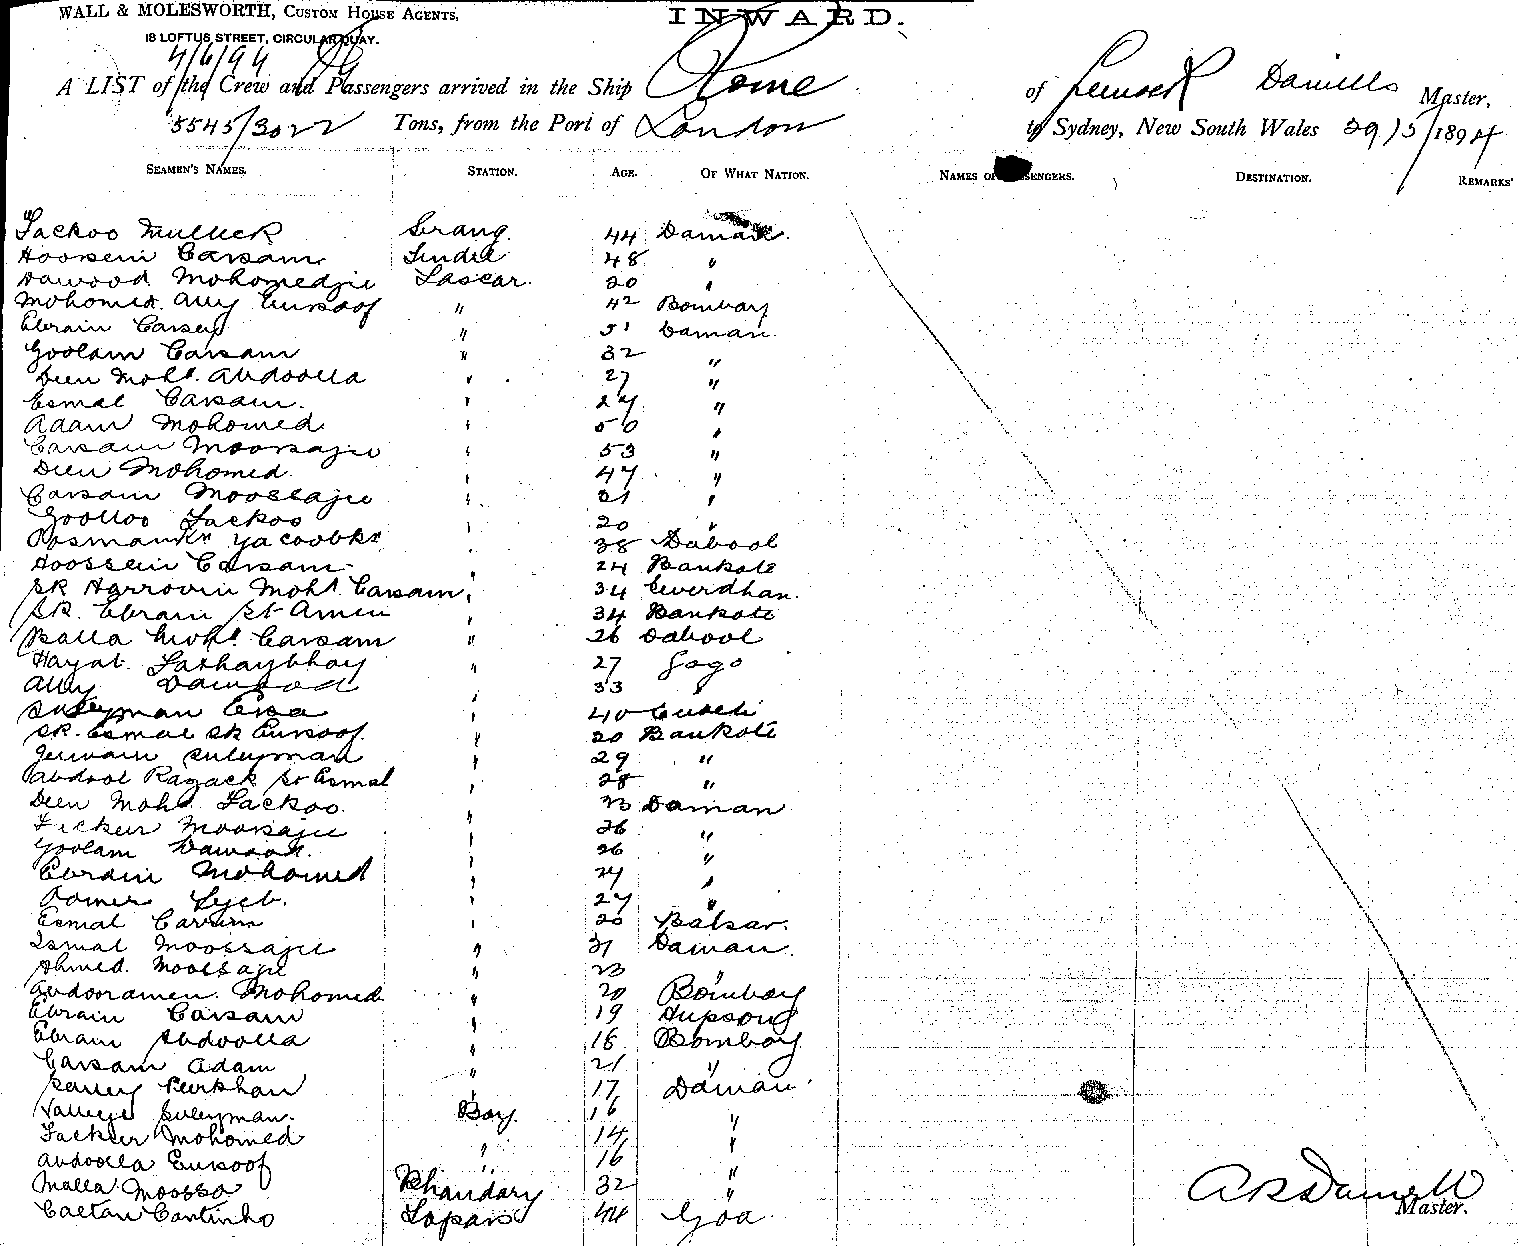 WALL & MOLESWORTH, CUSTOM HOUSE AGENTS,
INWARD.
18 LOFTUS STREET, CIRCULAR QUAY.
4/6/94
A LIST of the Crew and Passengers arrived in the Ship Rome of Daniells Master,
5545/3022 Tons, from the Port of London to Sydney, New South Wales 29/5/1894
SEAMEN'S NAMES. STATION. AGE. OF WHAT NATION. NAMES OF PASSENGERS. DESTINATION. REMARKS
Jackoo Mulleck Serang. 44 Daman.
Hoosein Carsam Tindel 48 "
Dawood Mohomedjie Lascar. 20 "
Mohomed Ally Eusoof " 42 Bombay
Ebrain Carsey " 51 Daman
Goolam Carsam " 32 "
Deen Mohd. Abdoolla " 27 "
Esmal Carsam. " 27 "
Adam Mohomed " 50 "
Carsam Moosajie " 53 "
Deen Mohomed " 47 "
Carsam Moosajie " 21 "
Goolloo Jackoo " 20 "
Yacoobkr " 38 Dabool
Hoossein Carsam " 24 Bankote
SK Harroon Mohd. Carsam " 34
SK. Ebrain SK Amin " 34 Bankote
Balla Mohd. Carsam " 26 Dabool
Hayat " 27 Gogo
Ally Dawood " 33 "
Suleyman Essa " 40
SK. Esmal SK Eusoof " 20 Bankote
Suleyman " 29 "
Abdool Razack SK Esmal " 28 "
Deen Mohd. Jackoo. " 23 Daman
Moosajie " 26 "
Goolam Dawood. " 26 "
Ebrain Mohomed " 24 "
" 27 "
Esmal Carrim " 20 Balsar.
Ismal Moossajie " 31 Daman.
Ahmed. Moosajie " 23 "
Abdooramen. Mohomed " 20 Bombay
Ebrain Carsam " 19
Ebrain Abdoolla " 18 Bombay
Carsam Adam " 21 "
" 17 Daman
Suleyman. Boy. 16 "
Mohomed " 14 "
Abdoolla Eusoof " 16 "
Malla Moossa Bhandary 32 "
Caetan Continho Topas 44 Goa
Master.